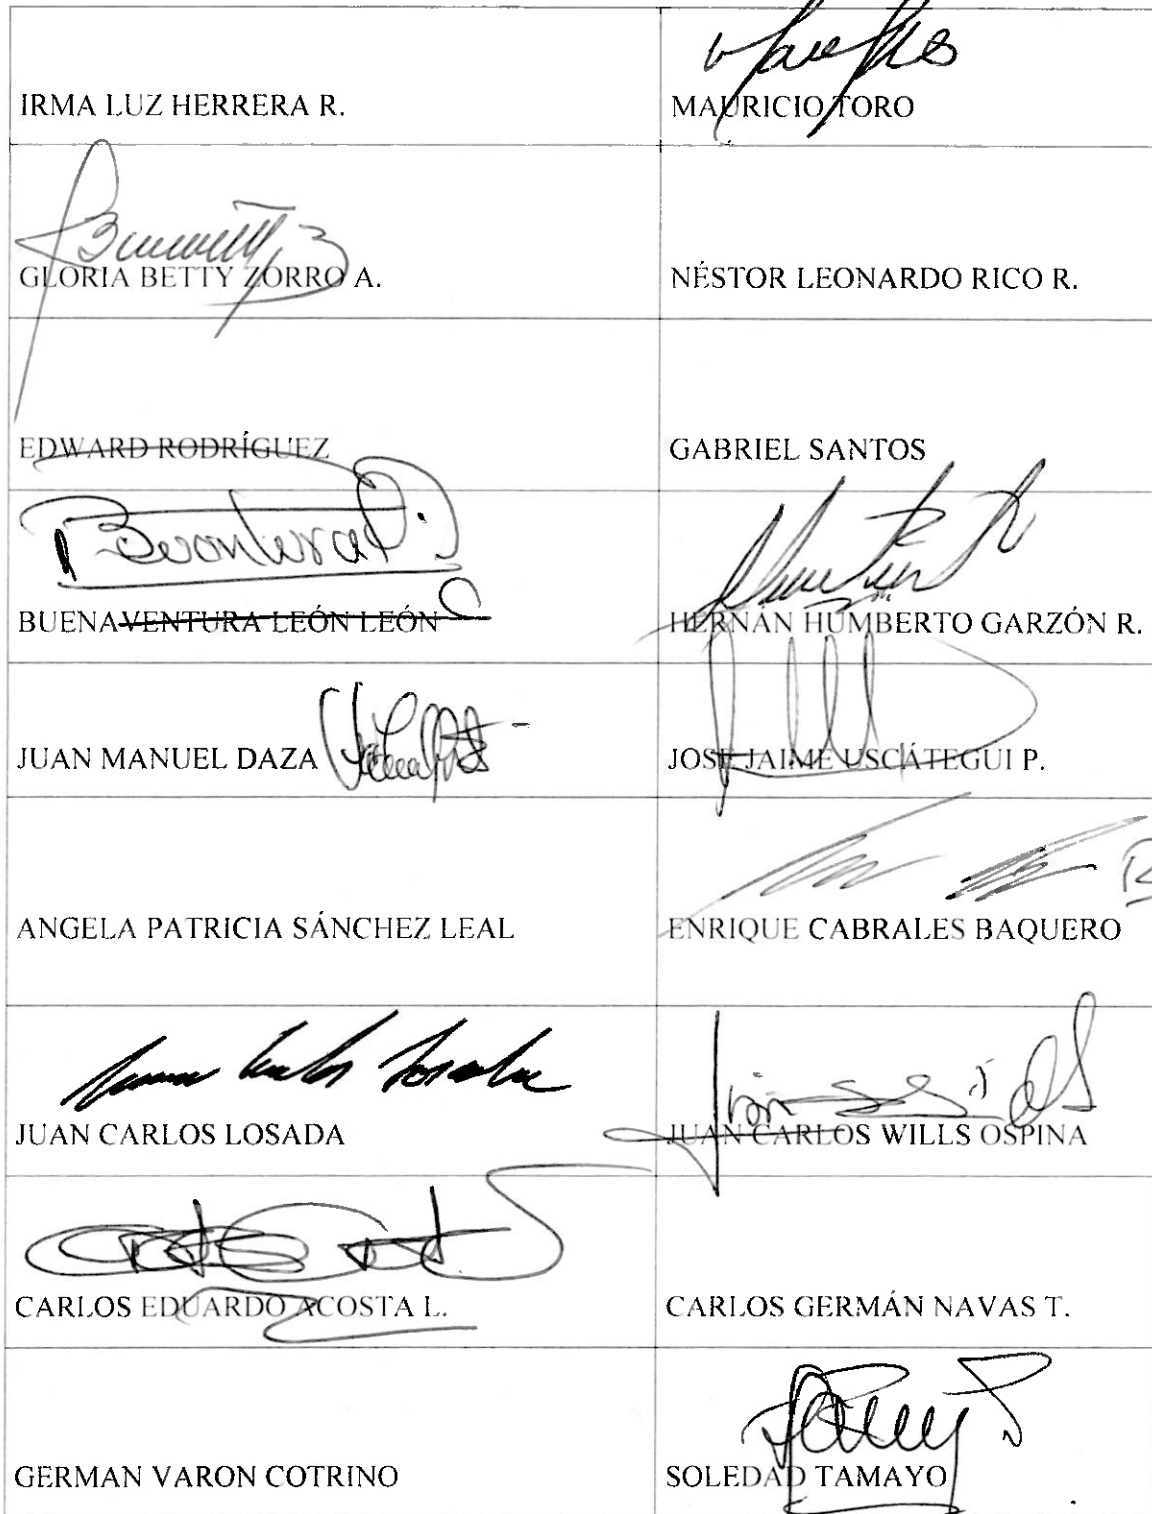 IRMA LUZ HERRERA R.
MAURICIO TORO
GLORIA BETTY ZORRO A.
NÉSTOR LEONARDO RICO R.
EDWARD RODRÍGUEZ
GABRIEL SANTOS
BUENAVENTURA LEÓN LEÓN
HERNÁN HUMBERTO GARZÓN R.
JUAN MANUEL DAZA
JOSE JAIME USCÁTEGUI P.
ANGELA PATRICIA SÁNCHEZ LEAL
ENRIQUE CABRALES BAQUERO
Juan Carlos Losada
JUAN CARLOS LOSADA
JUAN CARLOS WILLS OSPINA
CARLOS EDUARDO ACOSTA L.
CARLOS GERMÁN NAVAS T.
GERMAN VARON COTRINO
SOLEDAD TAMAYO